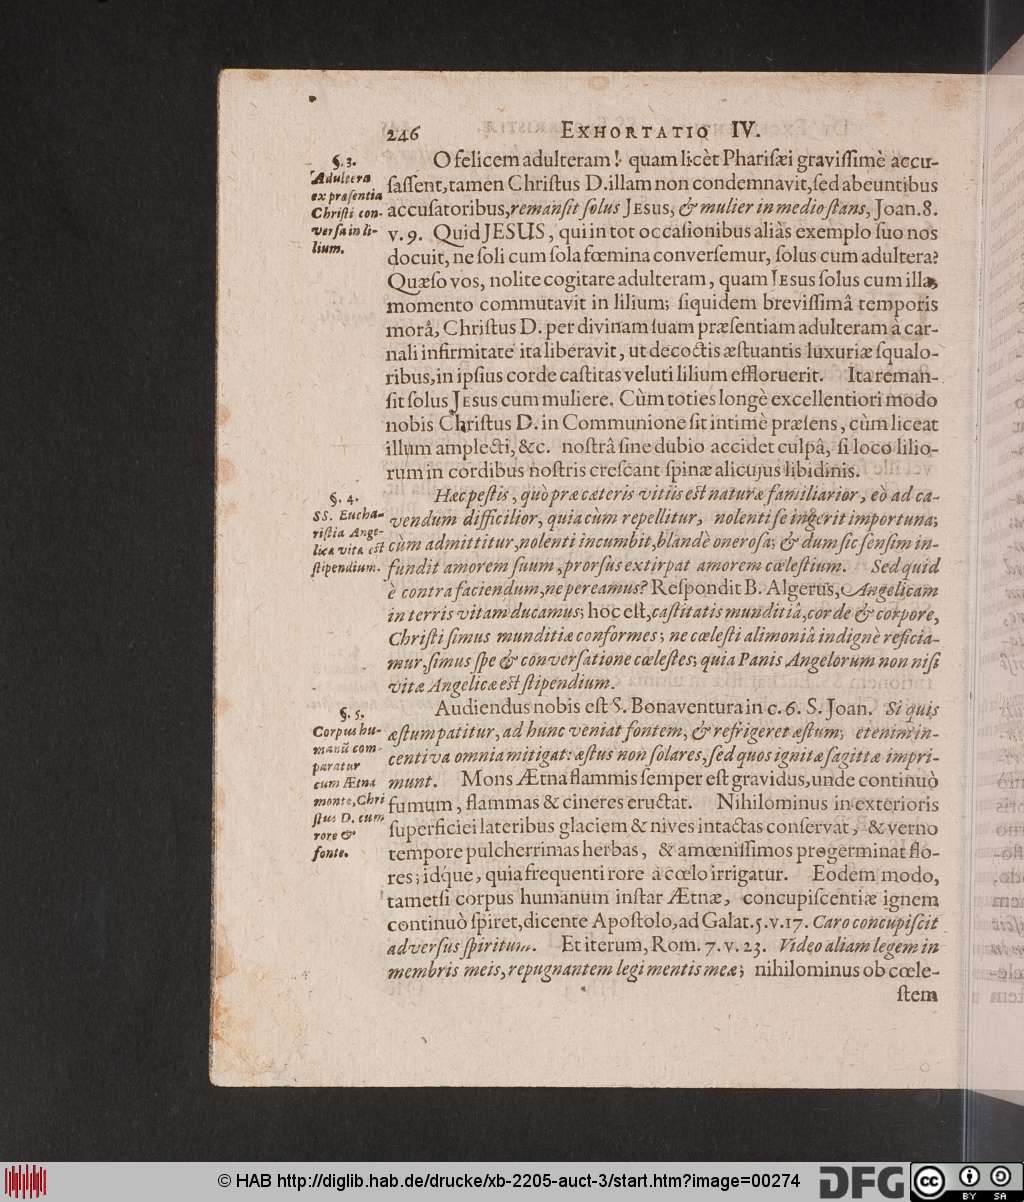 246 EXHORTATIO IV.
§. 3.
Adultera
ex præsentia
Christi con-
versa in li-
lium.
O felicem adulteram! quam licèt Pharisæi gravissimè accu-
sassent, tamen Christus D. illam non condemnavit, sed abeuntibus
accusatoribus, remansit solus JESUS, & mulier in medio stans, Joan. 8.
v. 9. Quid JESUS, qui in tot occasionibus aliàs exemplo suo nos
docuit, ne soli cum sola fœmina conversemur, solus cum adultera?
Quæso vos, nolite cogitare adulteram, quam JESUS solus cum illa,
momento commutavit in lilium; siquidem brevissimâ temporis
morâ, Christus D. per divinam suam præsentiam adulteram à car-
nali infirmitate ita liberavit, ut decoctis æstuantis luxuriæ squalo-
ribus, in ipsius corde castitas veluti lilium effloruerit. Ita reman-
sit solus JESUS cum muliere. Cùm toties longè excellentiori modo
nobis Christus D. in Communione sit intimè præsens, cùm liceat
illum amplecti, &c. nostrâ sine dubio accidet culpâ, si loco lilio-
rum in cordibus nostris crescant spinæ alicujus libidinis.
§. 4.
SS. Eucha-
ristia Ange-
lica vita est
stipendium.
Hæc pestis, quò præ cæteris vitiis est naturæ familiarior, eò ad ca-
vendum difficilior, quia cùm repellitur, nolenti se ingerit importuna;
cùm admittitur, nolenti incumbit, blandè onerosa; & dum sic sensim in-
fundit amorem suum, prorsus extirpat amorem cælestium. Sed quid
è contra faciendum, ne pereamus? Respondit B. Algerus, Angelicam
in terris vitam ducamus; hoc est, castitatis munditiâ, corde & corpore,
Christi simus munditiæ conformes; ne cœlesti alimoniâ indignè reficia-
mur, simus spe & conversatione cœlestes; quia Panis Angelorum non nisi
vitæ Angelicæ est stipendium.
§. 5.
Corpus hu-
manũ com-
paratur
cum Ætna
monte, Chri
stus D. cum
rore &
fonte.
Audiendus nobis est S. Bonaventura in c. 6. S. Joan. Si quis
æstum patitur, ad hunc veniat fontem, & refrigeret æstum; etenim in-
centiva omnia mitigat: æstus non solares, sed quos ignitæ sagittæ impri-
munt. Mons Ætna flammis semper est gravidus, unde continuò
fumum, flammas & cineres eructat. Nihilominus in exterioris
superficiei lateribus glaciem & nives intactas conservat, & verno
tempore pulcherrimas herbas, & amœnissimos progerminat flo-
res; idque, quia frequenti rore à cœlo irrigatur. Eodem modo,
tametsi corpus humanum instar Ætnæ, concupiscentiæ ignem
continuò spiret, dicente Apostolo, ad Galat. 5. v. 17. Caro concupiscit
adversùs spiritum. Et iterum, Rom. 7. v. 23. Video aliam legem in
membris meis, repugnantem legi mentis meæ; nihilominus ob cœle-
stem
© HAB http://diglib.hab.de/drucke/xb-2205-auct-3/start.htm?image=00274
DFG
cc BY SA